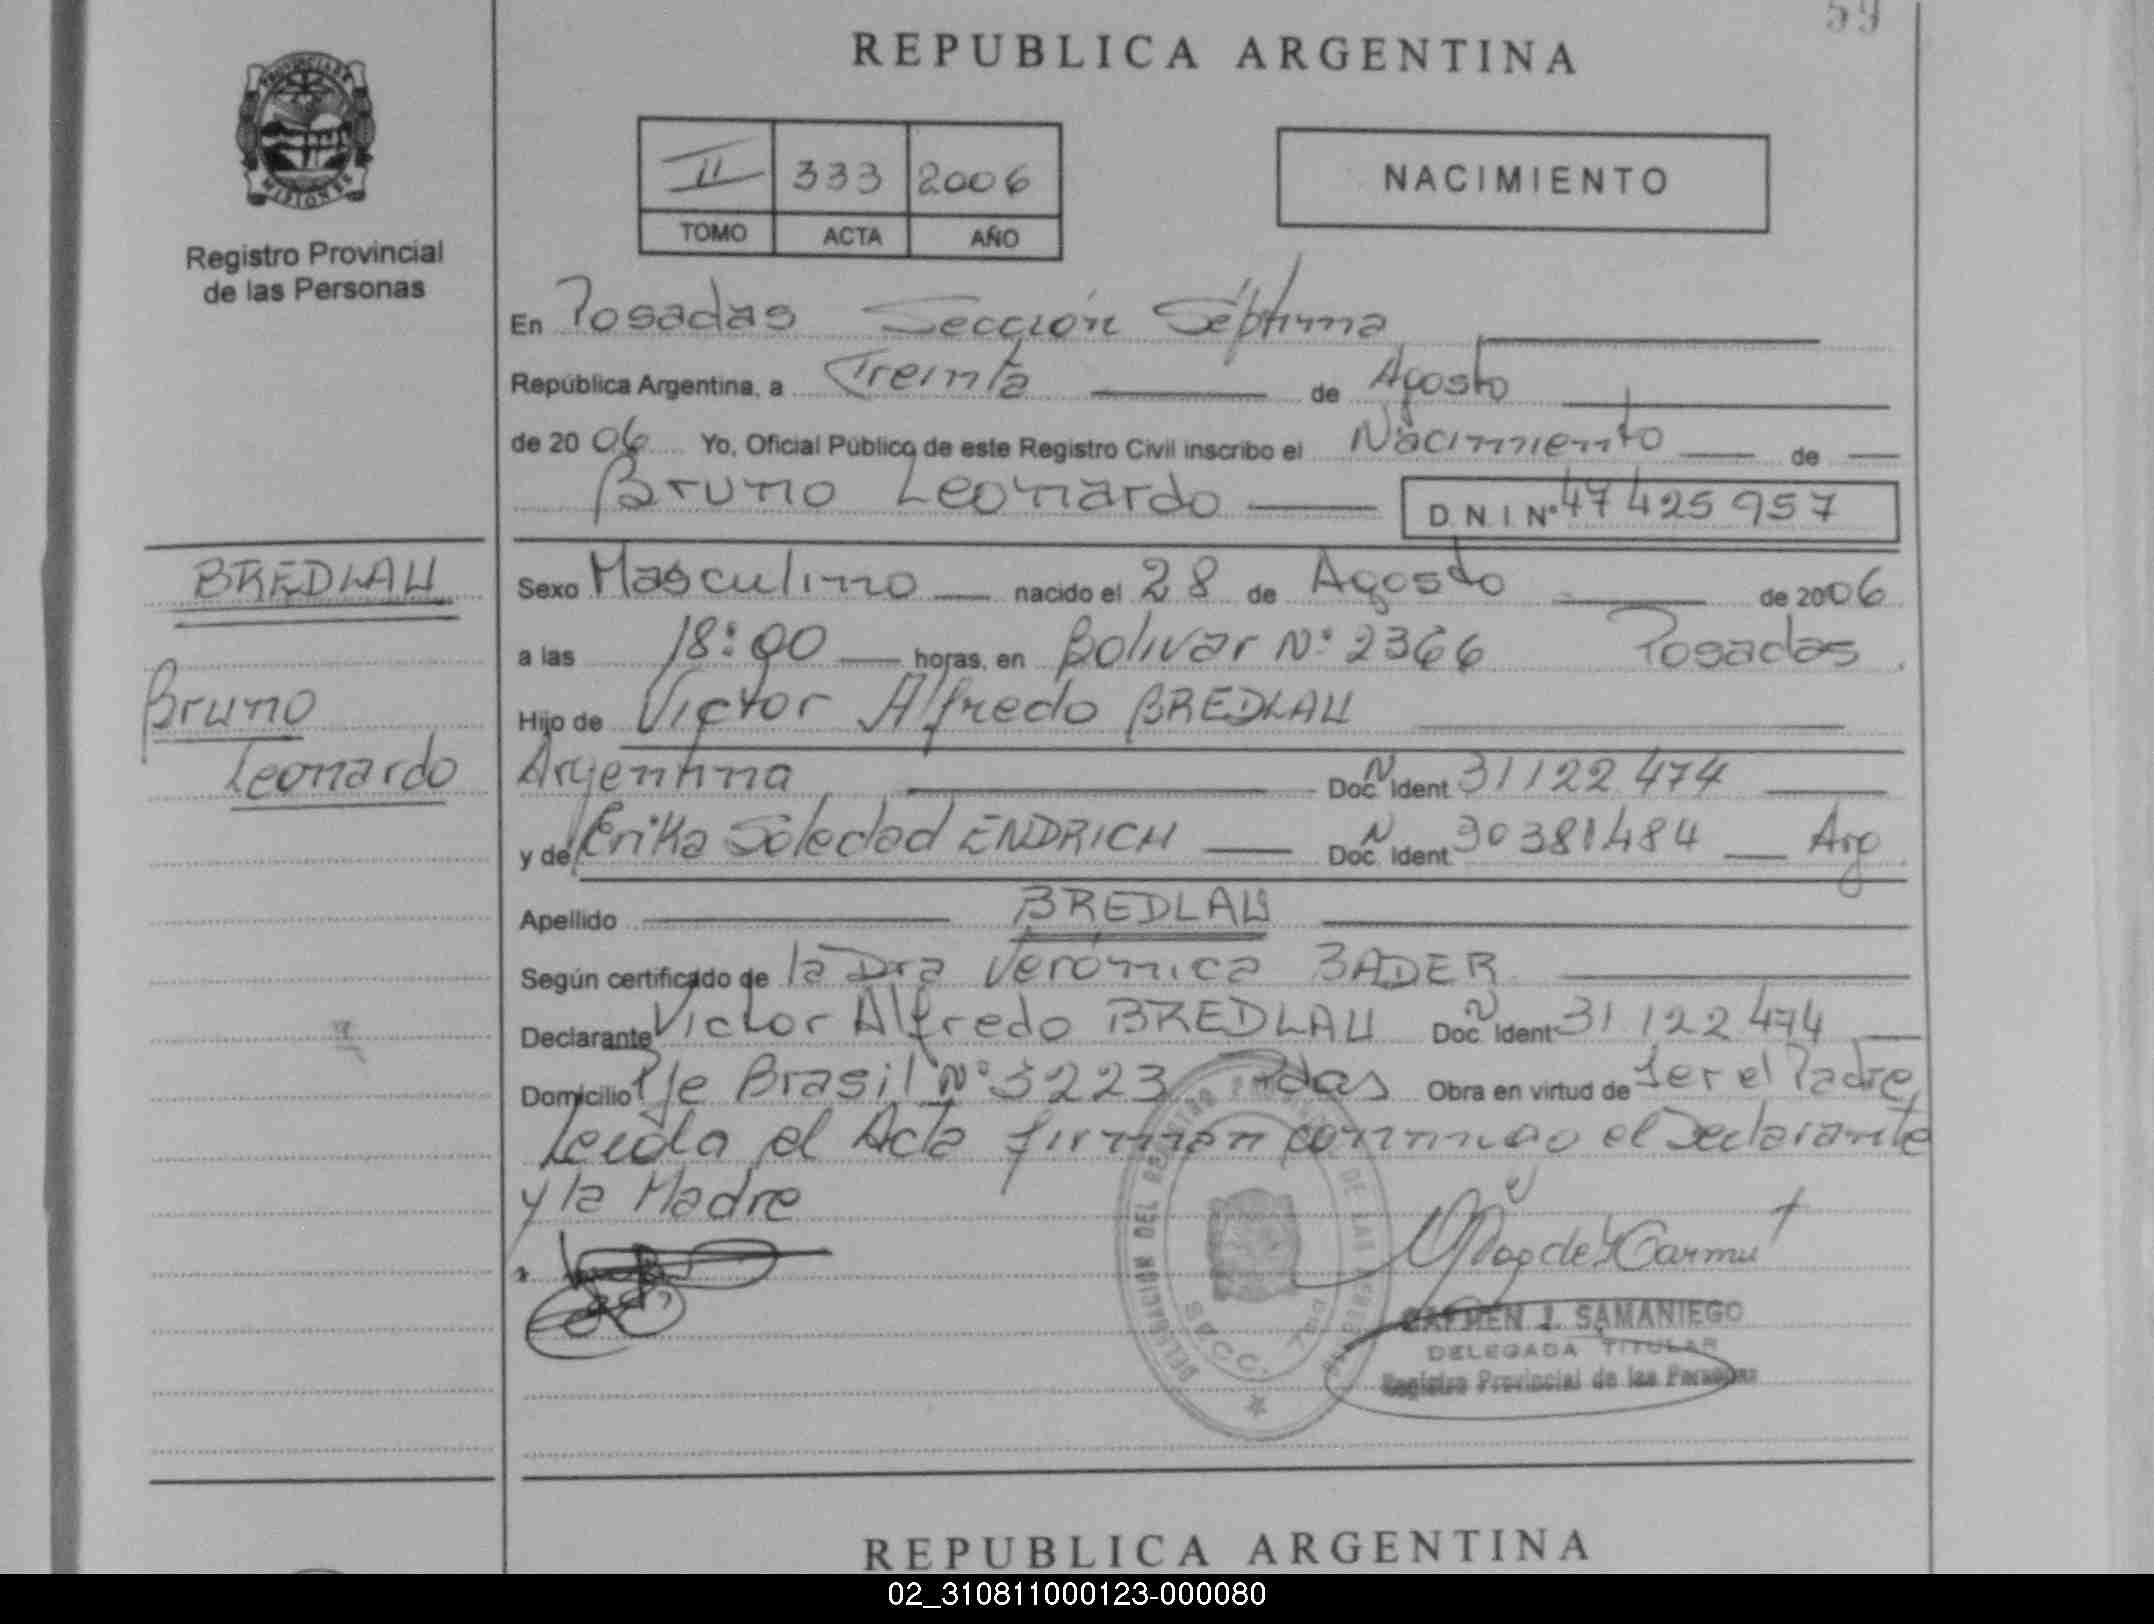 59
REPUBLICA ARGENTINA
PROVINCIA DE
MISIONES
Registro Provincial
de las Personas
II 333 2006
TOMO ACTA AÑO
NACIMIENTO
En Posadas Sección Séptima
República Argentina, a Treinta de Agosto
de 2006 Yo, Oficial Público de este Registro Civil inscribo el Nacimiento de
Bruno Leonardo D N I Nº 47 425 957
BREDLAU
Bruno
Leonardo
Sexo Masculino nacido el 28 de Agosto de 2006
a las 18:00 horas, en Bolivar Nº 2366 Posadas
Hijo de Victor Alfredo BREDLAU
Argentina Doc. Ident. N 31122474
y de Erika Soledad ENDRICH Doc. Ident. N 30381484 Arg
Apellido BREDLAU
Según certificado de la Dra Verónica BADER
Declarante Victor Alfredo BREDLAU Doc. Ident. N 31122474
Domicilio Pje Brasil Nº 3223 Pdas Obra en virtud de Ser el Padre,
Leida el Acta firman conmigo el Declarante
y la Madre
DELEGACION DEL REGISTRO DE LAS
SACC.
CARMEN J. SAMANIEGO
DELEGADA TITULAR
Registro Provincial de las Personas
REPUBLICA ARGENTINA
02_310811000123-000080